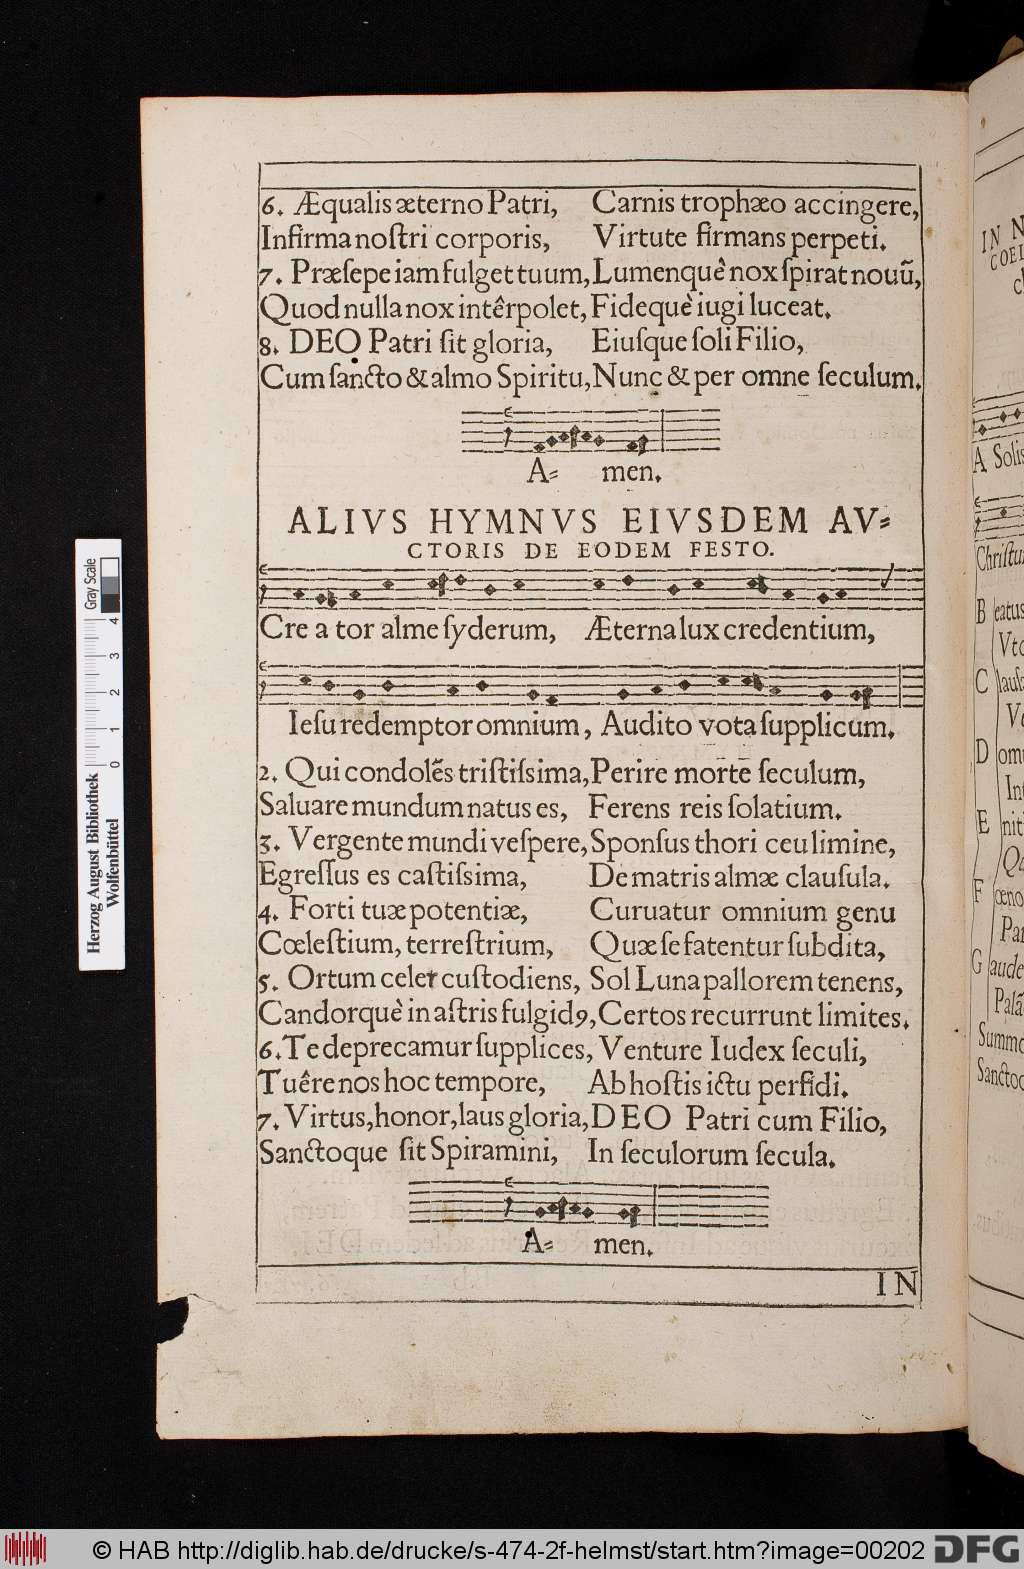 6. Æqualis æterno Patri, Carnis trophæo accingere,
Infirma noſtri corporis, Virtute firmans perpeti.
7. Præſepe iam fulget tuum, Lumenquè nox ſpirat nouũ,
Quod nulla nox intêrpolet, Fidequè iugi luceat.
8. DEO Patri ſit gloria, Eiuſque ſoli Filio,
Cum ſancto & almo Spiritu, Nunc & per omne ſeculum.
A= men.
ALIVS HYMNVS EIVSDEM AV=
CTORIS DE EODEM FESTO.
Cre a tor alme ſyderum, Æterna lux credentium,
Ieſu redemptor omnium, Audito vota ſupplicum.
2. Qui condolẽs triſtiſsima, Perire morte ſeculum,
Saluare mundum natus es, Ferens reis ſolatium.
3. Vergente mundi veſpere, Sponſus thori ceu limine,
Egreſſus es caſtiſsima, De matris almæ clauſula.
4. Forti tuæ potentiæ, Curuatur omnium genu
Cœleſtium, terreſtrium, Quæ ſe fatentur ſubdita,
5. Ortum celer cuſtodiens, Sol Luna pallorem tenens,
Candorquè in aſtris fulgidꝰ, Certos recurrunt limites.
6. Te deprecamur ſupplices, Venture Iudex ſeculi,
Tuêre nos hoc tempore, Ab hoſtis ictu perfidi.
7. Virtus, honor, laus gloria, DEO Patri cum Filio,
Sanctoque ſit Spiramini, In ſeculorum ſecula.
A= men.
IN
IN N
COEL
A Solis
Chriſtu
B eatus
C lauſ
D om
E nit
F œno
G aude
Summo
Sancto
Gray Scale
0 1 2 3 4
Herzog August Bibliothek
Wolfenbüttel
© HAB http://diglib.hab.de/drucke/s-474-2f-helmst/start.htm?image=00202 DFG